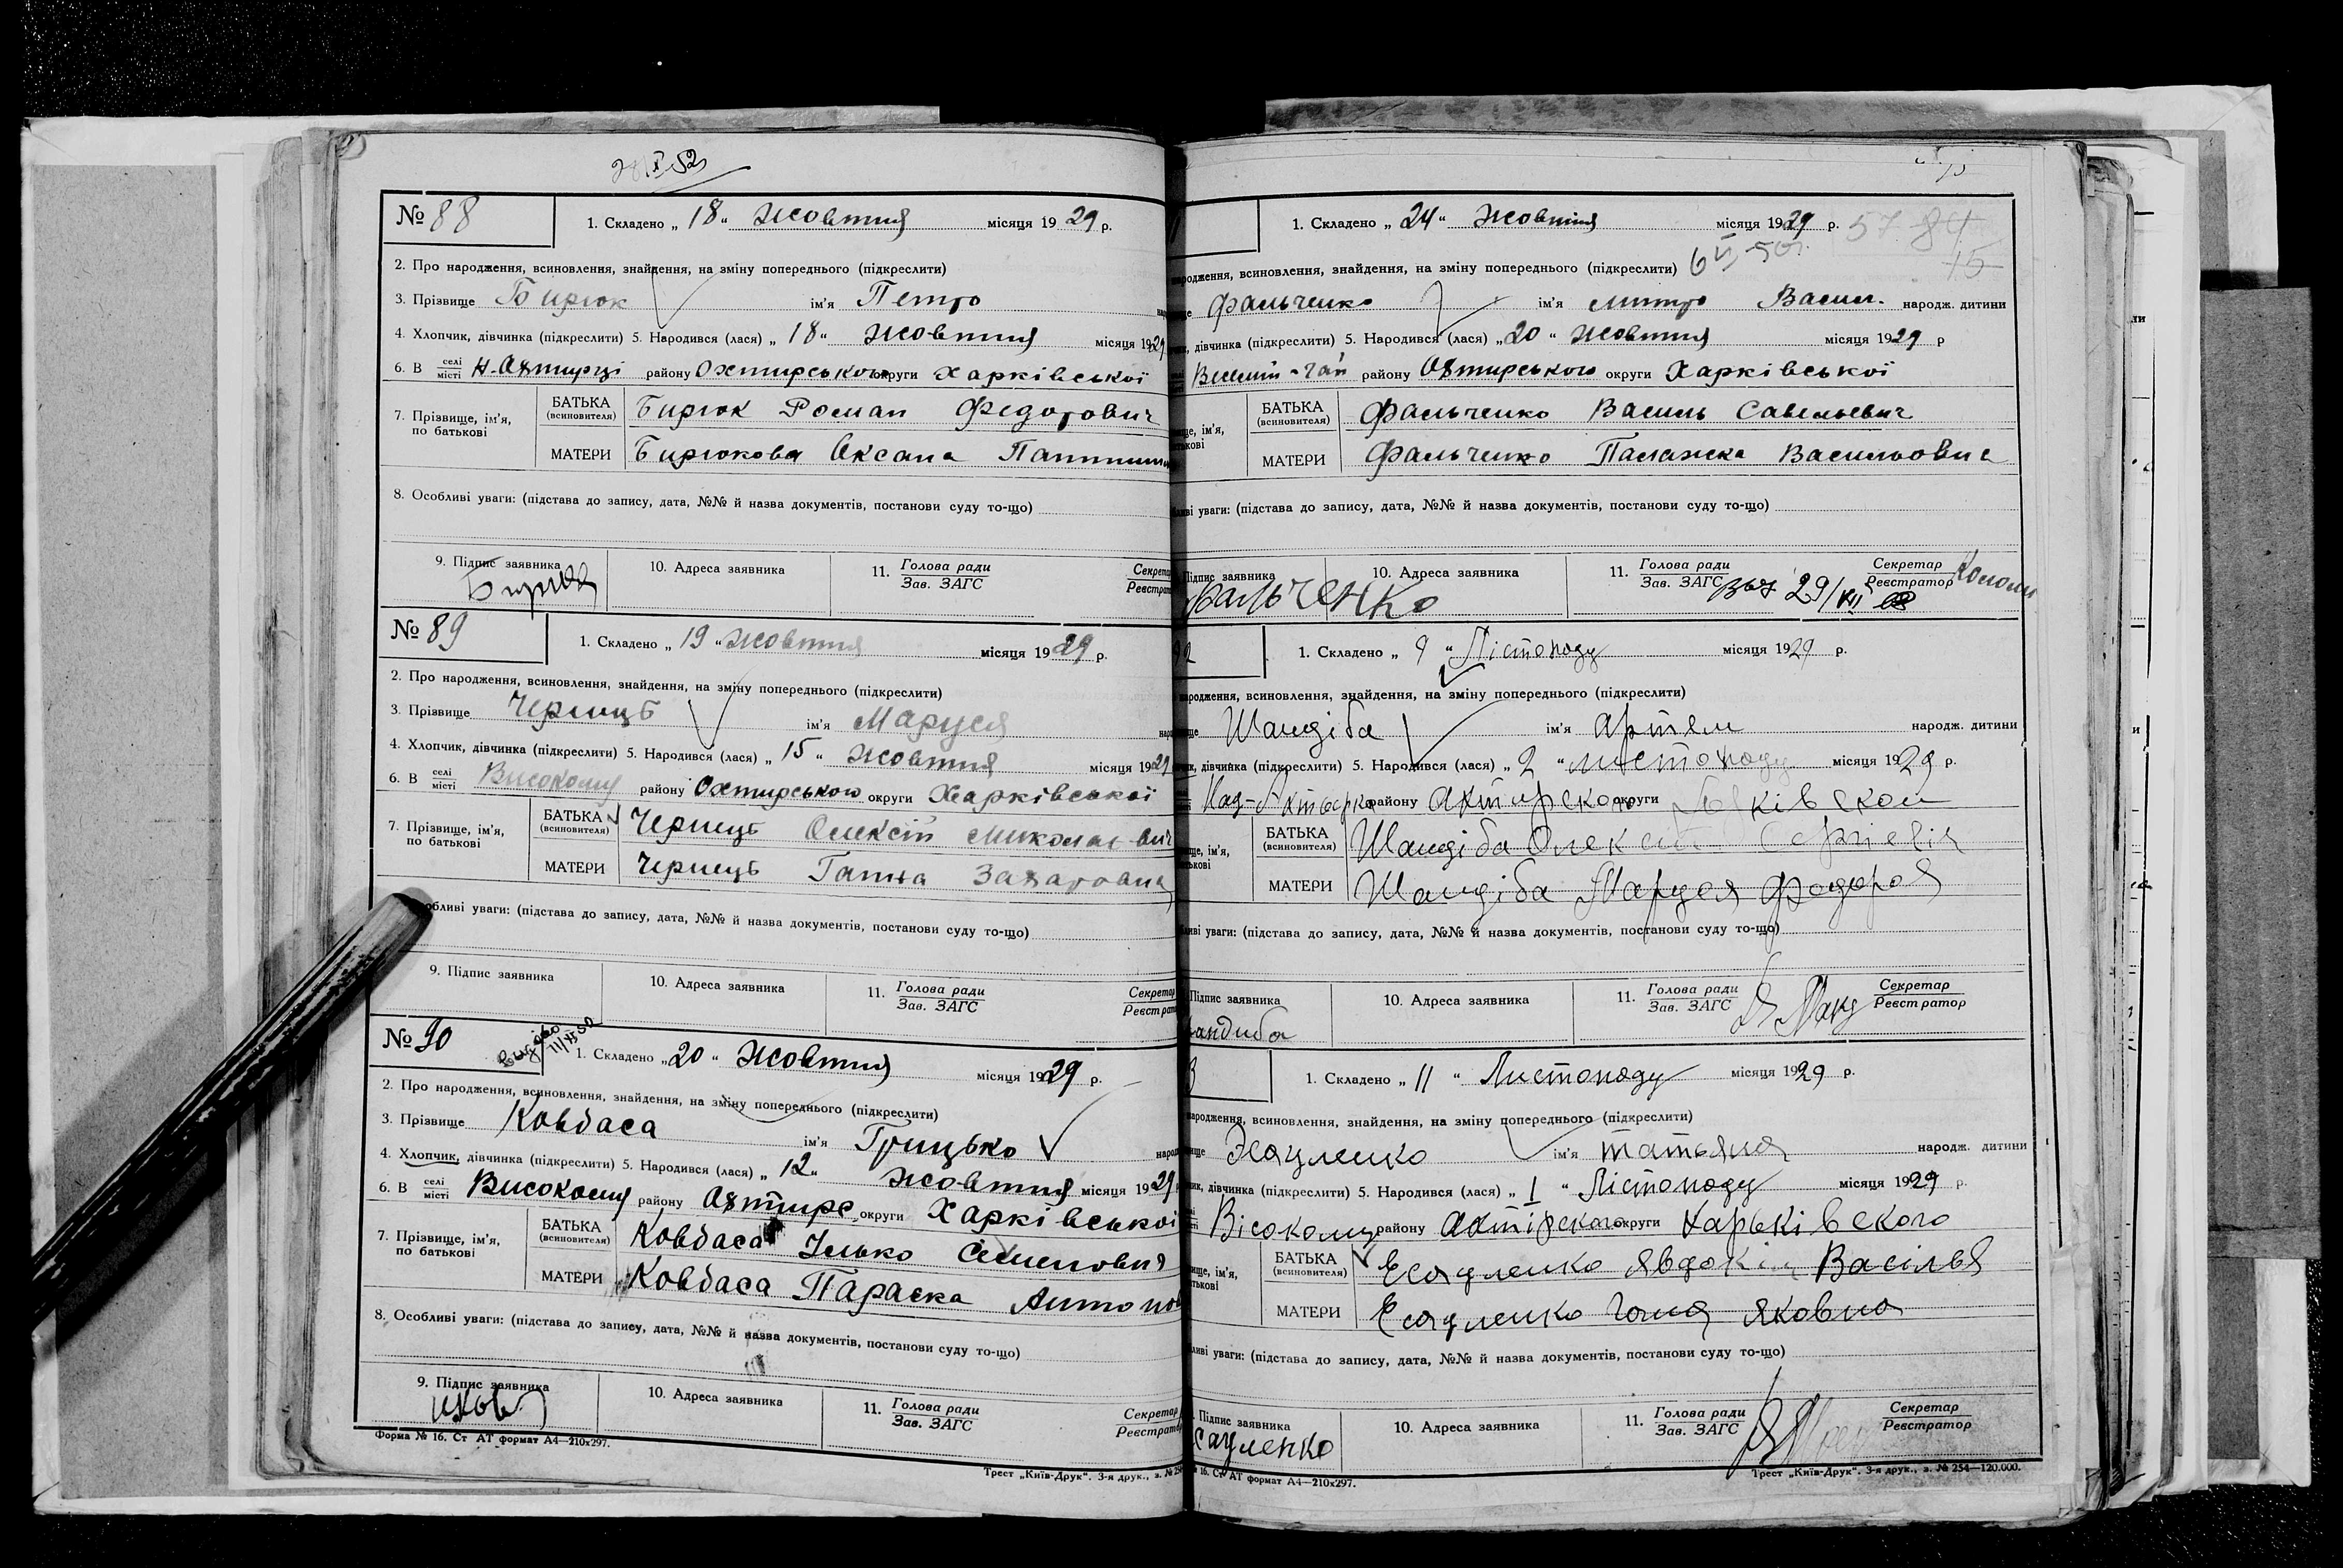 № 88
1. Складено „ 18 “ Жовтня місяця 1929 р.
2. Про народження, всиновлення, знайдення, на зміну попереднього (підкреслити)
3. Прізвище Бирюк ім'я Петро
4. Хлопчик, дівчинка (підкреслити) 5. Народився (лася) „ 18 “ Жовтня місяця 1929
6. В селі місті Н-Охтирці району Охтирського округи Харківської
7. Прізвище, ім'я, по батькові
БАТЬКА (всиновителя) Бирюк Роман Федорович
МАТЕРИ Бирюкова Оксана
8. Особливі уваги: (підстава до запису, дата, №№ й назва документів, постанови суду то-що)
9. Підпис заявника 10. Адреса заявника 11. Голова ради Зав. ЗАГС Секретар
№ 89
1. Складено „ 19 “ Жовтня місяця 1929 р.
2. Про народження, всиновлення, знайдення, на зміну попереднього (підкреслити)
3. Прізвище Чернець ім'я Маруся
4. Хлопчик, дівчинка (підкреслити) 5. Народився (лася) „ 15 “ Жовтня місяця 1929
6. В селі місті району Охтирського округи Харківської
7. Прізвище, ім'я, по батькові
БАТЬКА (всиновителя) Чернець Олексій
МАТЕРИ Чернець Ганна Захаровна
обливі уваги: (підстава до запису, дата, №№ й назва документів, постанови суду то-що)
9. Підпис заявника 10. Адреса заявника 11. Голова ради Зав. ЗАГС Секретар
№ 90
1. Складено „ 20 “ Жовтня місяця 1929 р.
2. Про народження, всиновлення, знайдення, на зміну попереднього (підкреслити)
3. Прізвище Ковбаса ім'я Грицько
4. Хлопчик, дівчинка (підкреслити) 5. Народився (лася) „ 12 “ Жовтня місяця 1929
6. В селі місті району Охтирс округи Харківської
7. Прізвище, ім'я, по батькові
БАТЬКА (всиновителя) Ковбаса Ілько Семенович
МАТЕРИ Ковбаса Параска
8. Особливі уваги: (підстава до запису, дата, №№ й назва документів, постанови суду то-що)
9. Підпис заявника 10. Адреса заявника 11. Голова ради Зав. ЗАГС Секретар
Форма № 16. Ст АТ формат А4—210х297.
Трест „Київ-Друк“. 3-я друк., з. №
1. Складено „ 24 “ Жовтня місяця 1929 р.
ародження, всиновлення, знайдення, на зміну попереднього (підкреслити)
Фальченко ім'я Митро Васил. народж. дитини
дівчинка (підкреслити) 5. Народився (лася) „ 20 “ Жовтня місяця 1929 р
району Охтирського округи Харківської
БАТЬКА (всиновителя) Фальченко Василь Савельевич
МАТЕРИ Фальченко Палажка
уваги: (підстава до запису, дата, №№ й назва документів, постанови суду то-що)
Підпис заявника 10. Адреса заявника 11. Голова ради Зав. ЗАГС Секретар Реєстратор
Фальченко
1. Складено „ 9 “ Лістопаду місяця 1929 р.
ародження, всиновлення, знайдення, на зміну попереднього (підкреслити)
Шандіба ім'я Артем народж. дитини
дівчинка (підкреслити) 5. Народився (лася) „ 2 “ листопаду місяця 1929 р.
району округи
БАТЬКА (всиновителя) Шандіба
МАТЕРИ Шандіба Маруся Федоров
уваги: (підстава до запису, дата, №№ й назва документів, постанови суду то-що)
Підпис заявника 10. Адреса заявника 11. Голова ради Зав. ЗАГС Секретар Реєстратор
андиба
1. Складено „ 11 “ Листопаду місяця 1929 р.
ародження, всиновлення, знайдення, на зміну попереднього (підкреслити)
ім'я Татьяна народж. дитини
дівчинка (підкреслити) 5. Народився (лася) „ 1 “ Лістопаду місяця 1929 р.
району округи Харьківского
БАТЬКА (всиновителя) Есауленко
МАТЕРИ Есауленко Яковна
уваги: (підстава до запису, дата, №№ й назва документів, постанови суду то-що)
Підпис заявника 10. Адреса заявника 11. Голова ради Зав. ЗАГС Секретар Реєстратор
сауленко
16. Ст АТ формат А4—210х297.
Трест „Київ-Друк“. 3-я друк., з. № 254—120.000.